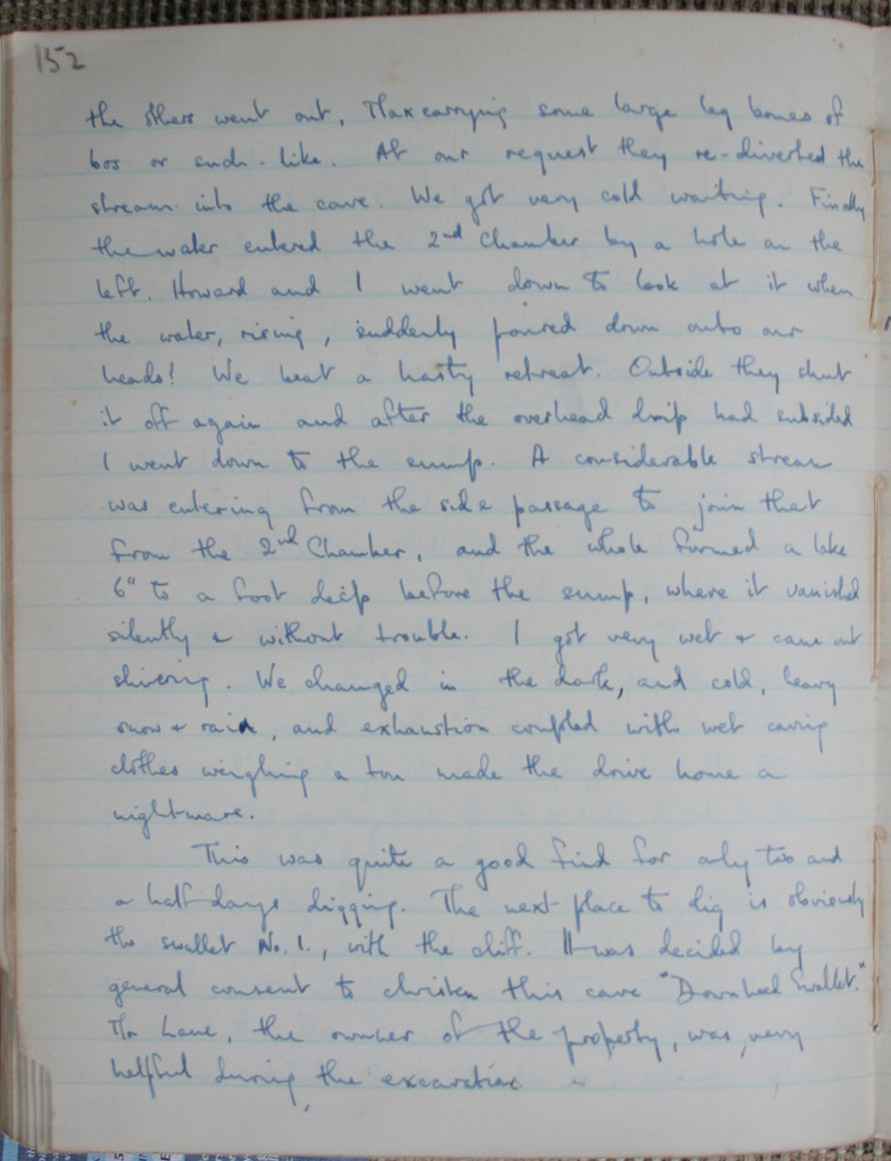 152
the others went out, Max carrying some large leg bones of
bos or such-like. At our request they re-diverted the
stream into the cave. We got very cold waiting. Finally
the water entered the 2nd Chamber by a hole on the
left. Howard and I went down to look at it when
the water, rising, suddenly poured down onto our
heads! We beat a hasty retreat. Outside they shut
it off again and after the overhead drip had subsided
I went down to the sump. A considerable stream
was entering from the side passage to join that
from the 2nd Chamber, and the whole formed a lake
6" to a foot deep before the sump, where it vanished
silently & without trouble. I got very wet & came out
shivering. We changed in the dark, and cold, heavy
snow & rain, and exhaustion coupled with wet caving
clothes weighing a ton made the drive home a
nightmare.
This was quite a good find for only two and
a half days digging. The next place to dig is obviously
the swallet No. 1., with the cliff. It was decided by
general consent to christen this cave "Downhead Swallet."
Mr Lane, the owner of the property, was very
helpful during the excavation